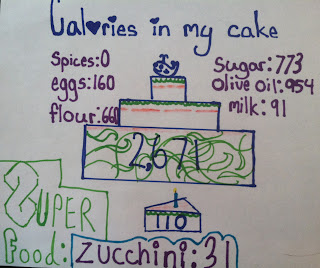 Calories in my cake
Spices:0
eggs:160
flour:660
Sugar:773
Olive oil:954
milk:91
2,671
110
Zuper
Food: Zucchini:31